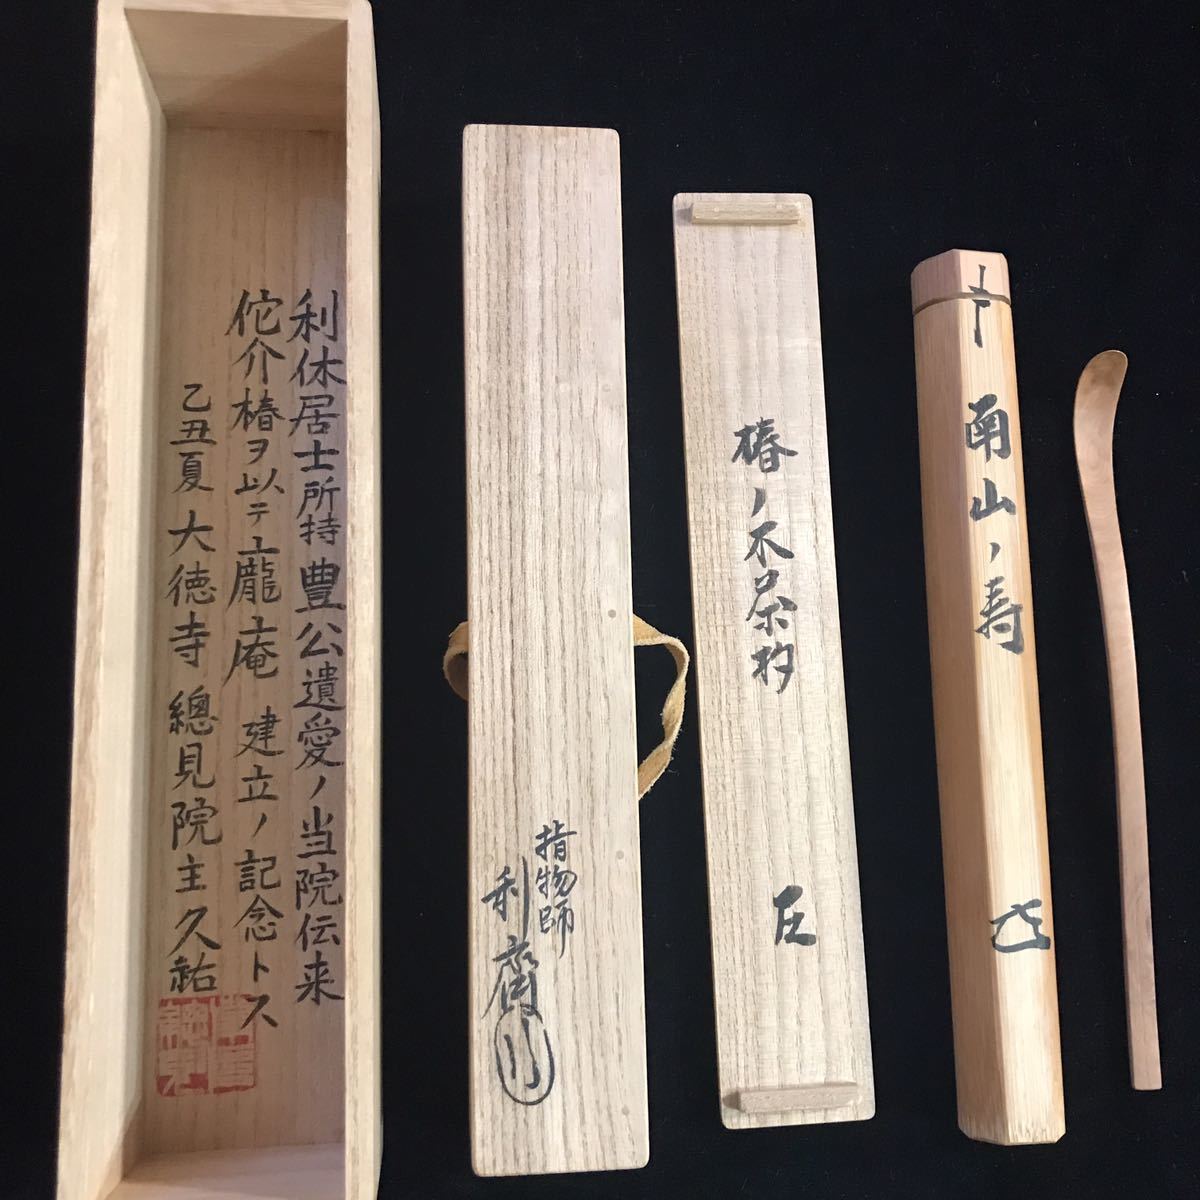 利休居士所持豊公遺愛ノ当院伝来
侘介椿ヲ以テ龐庵建立ノ記念トス
乙丑夏大徳寺總見院主久祐
指物師
利齋
椿ノ木茶杓
南山ノ寿